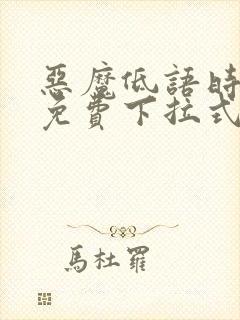 惡魔低語時
免費下拉式
馬杜羅